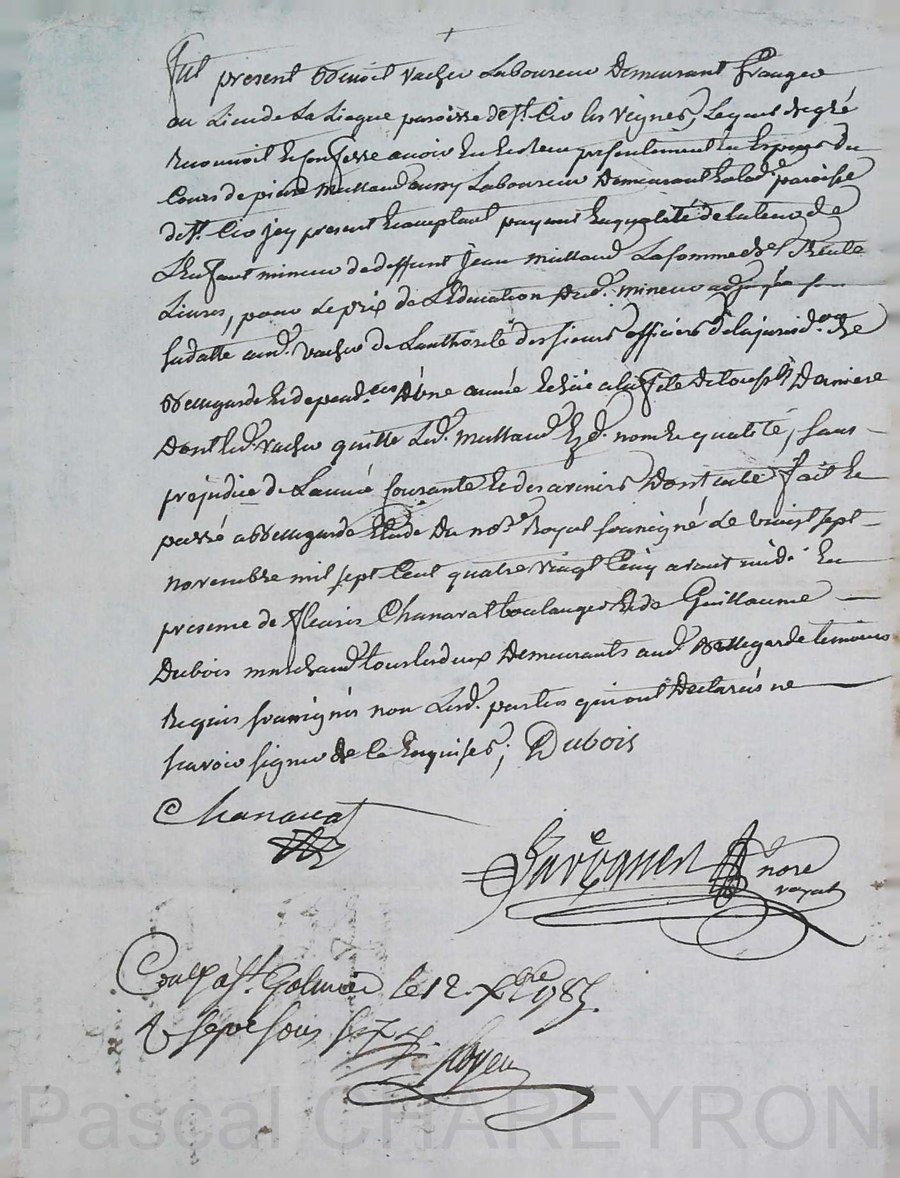 fut present Benoit vacher Laboureur Demeurant
au Lieu de La Liegue paroisse de St. Cir les vignes, Lequel de gré
Reconnoit et confesse avoir Eu et Receu presentement En Especes du
Cours de pierre Mullaud aussy Laboureur Demeurant paroisse
de St. Cir jcy present Enqualité de tuteur de
L'Enfant mineur de deffunt jean mullaud La somme de Trente
Livres, pour Le prix de L'Education dud. mineur
aud. vacher de L'authorité des sieurs officiers de la jurisd.on de
Bellegarde et dependces D'une année Echüe a la fête de Toussts Derniere
Dont Led. vacher quitte Led. mullaud Esd. nom et qualité, sans
prejudice de L'année Courante et des avenirs Dont acte fait et
passé a Bellegarde Etude du nore Royal soussigné Le vingt sept
novembre mil sept Cent quatre vingt Cinq avant midi En
presence de fleuris Chanarat boulanger et de Guillaume
Dubois marchand tous Les deux Demeurants aud. Bellegarde temoins
Requis soussignés non Lesd. parties qui ont Declarés ne
sçavoir signer de ce Enquises; Dubois
Chanarat
nore
royal
Conlé a St. Galmier le 12. Xbre 1785.
sous